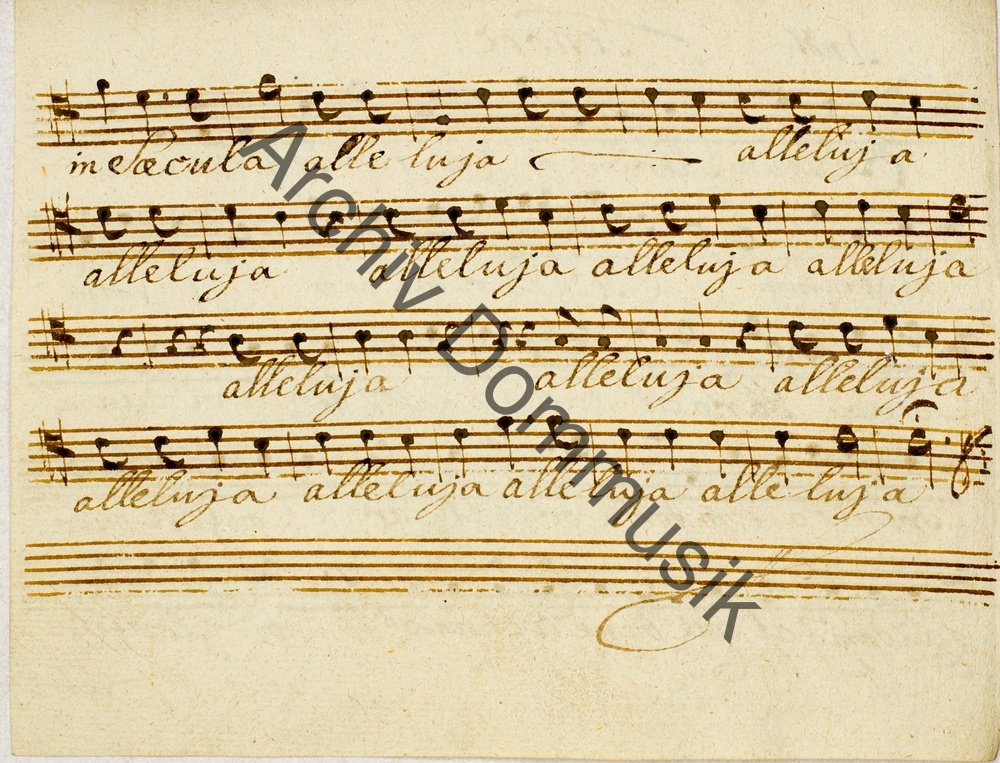 in Sæcula alle luja alleluja
alleluja alleluja alleluja alleluja
alleluja alleluja alleluja
alleluja alleluja alleluja alle luja
Archiv Dommusik